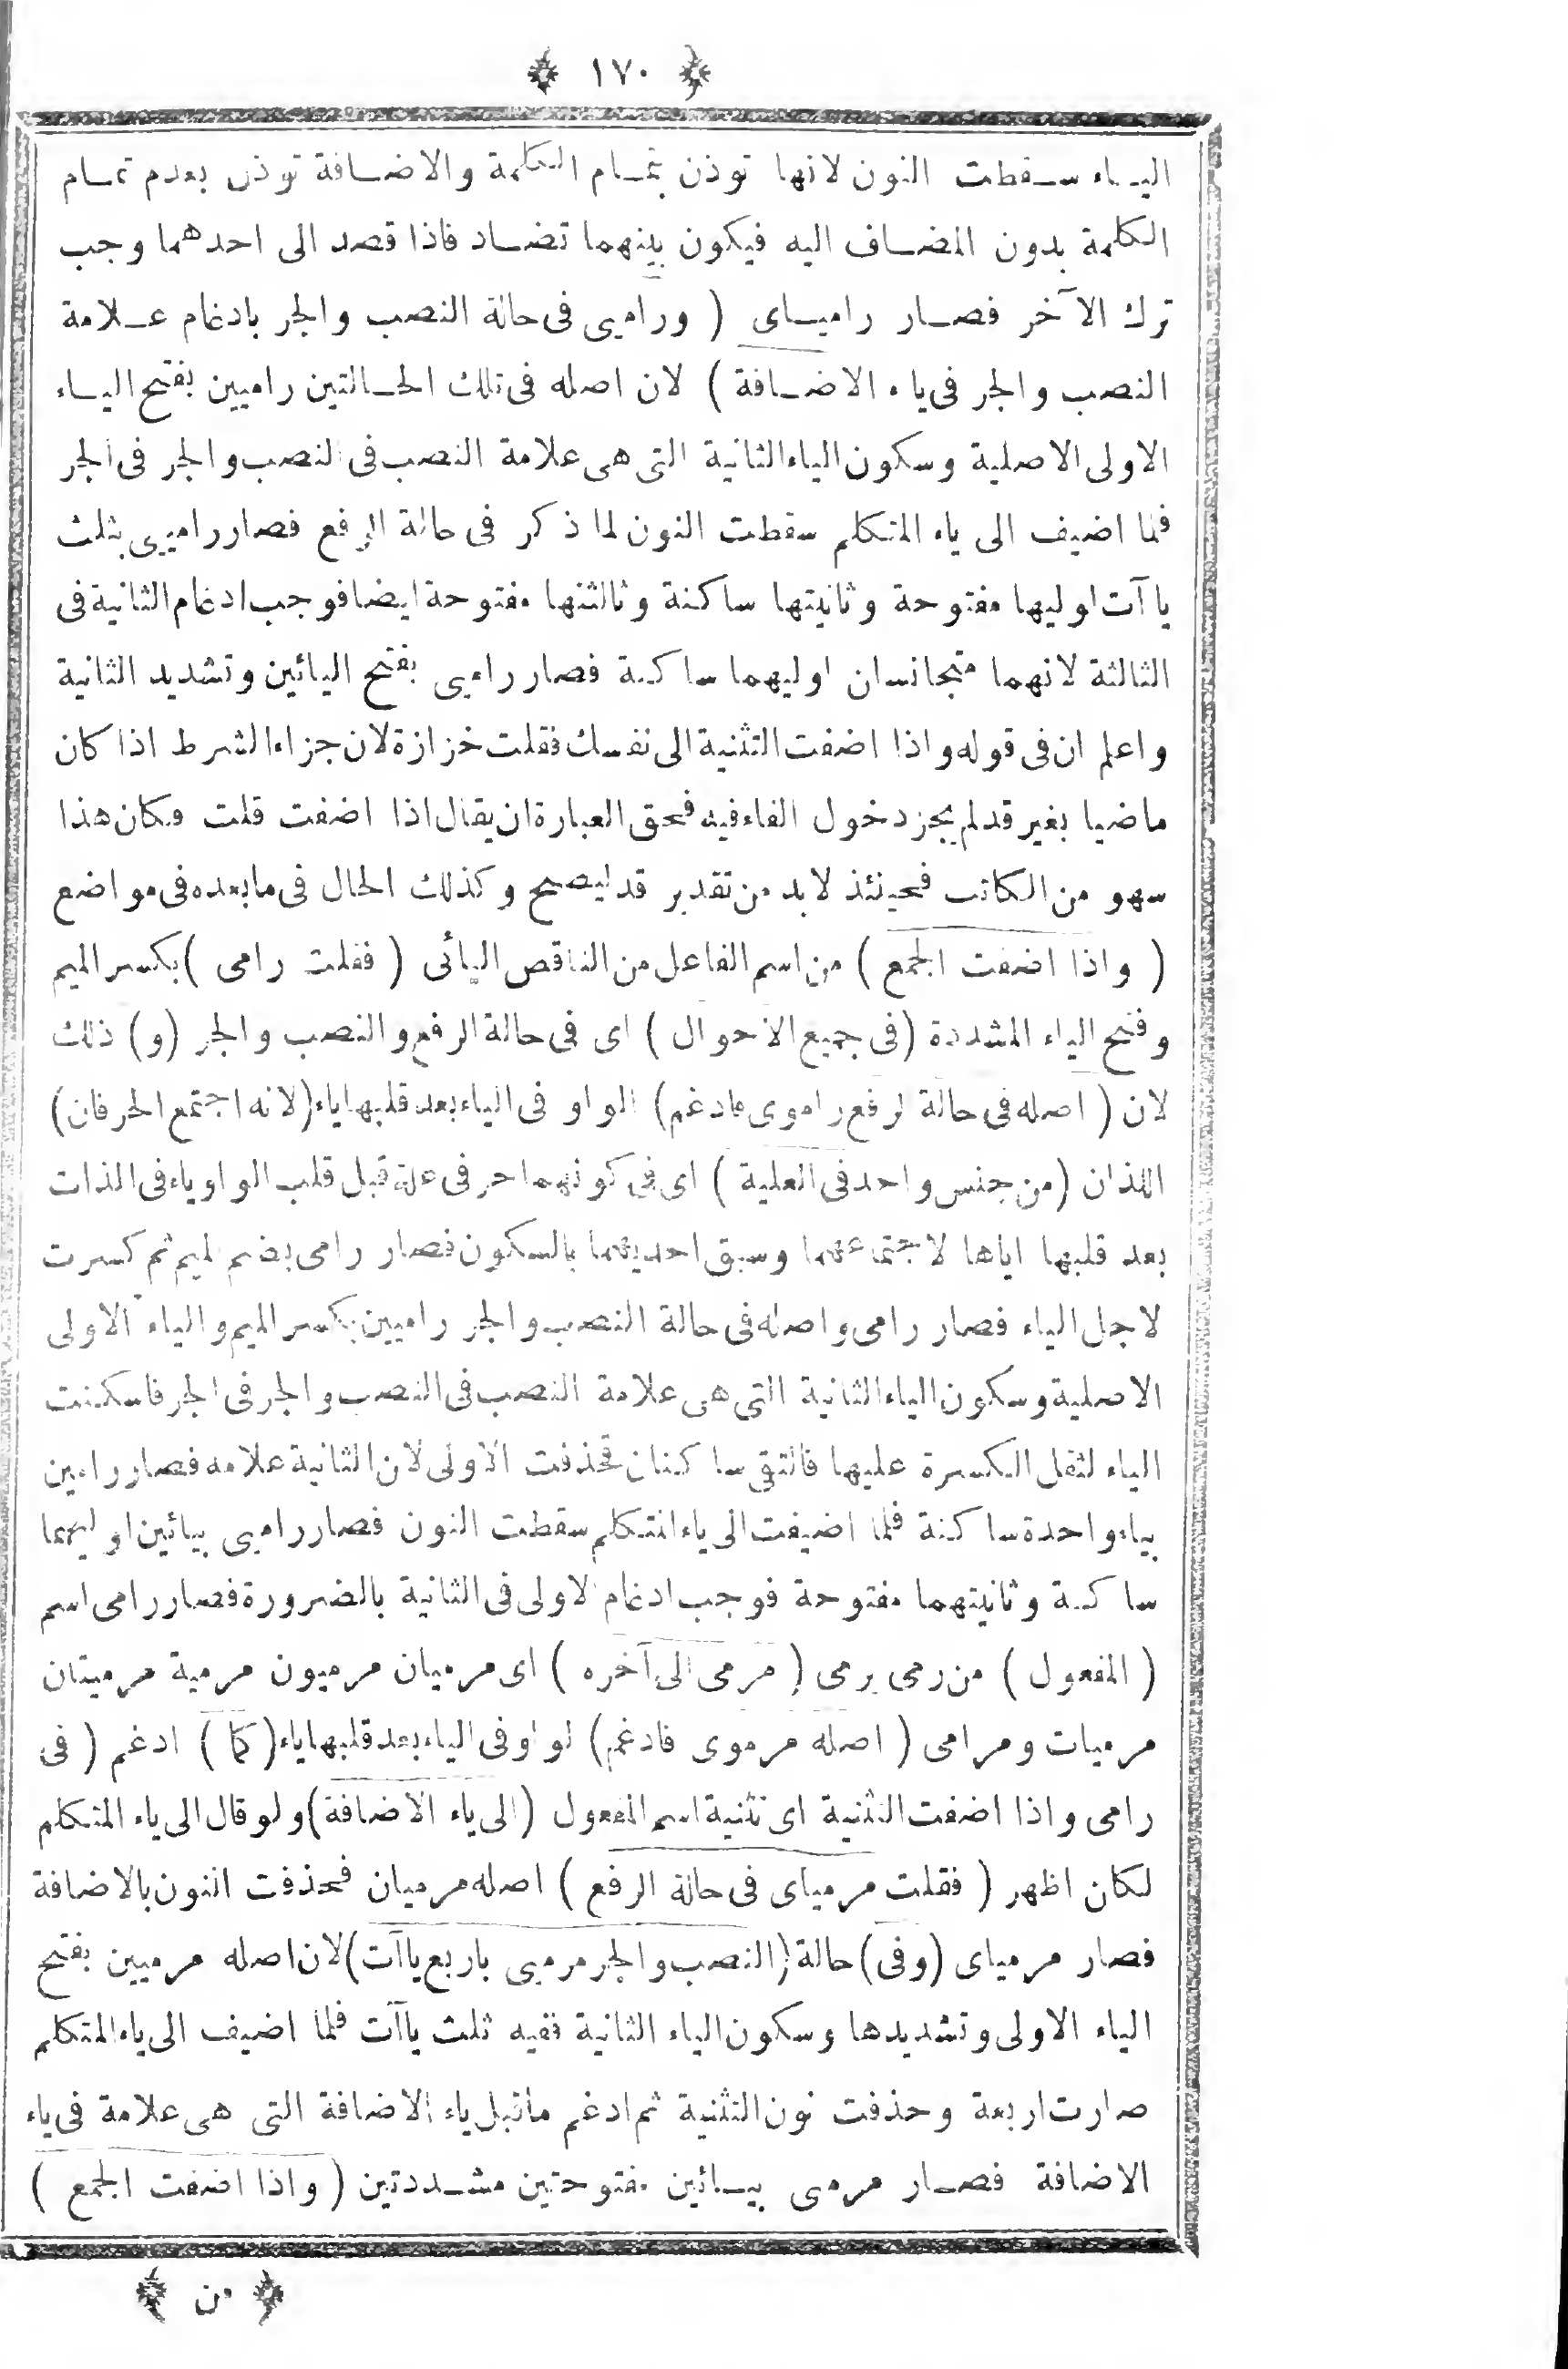 ١٧٠
الياء سقطت النون لانها توذن بتمام الكلمة والاضافة توذن بعدم تمام
الكلمة بدون المضاف اليه فيكون بينهما تضاد فاذا قصد الى احدهما وجب
ترك الآخر فصار رامياى ( وراميى فى حالة النصب والجر بادغام علامة
النصب والجر فى ياء الاضافة ) لان اصله فى تلك الحالتين راميين بفتح الياء
الاولى الاصلية وسكون الياء الثانية التى هى علامة النصب فى النصب والجر فى الجر
فلما اضيف الى ياء المتكلم سقطت النون لما ذكر فى حالة الرفع فصار راميى بثلث
ياآت اوليها مفتوحة وثانيتها ساكنة وثالثتها مفتوحة ايضا فوجب ادغام الثانية فى
الثالثة لانهما متجانسان اوليهما ساكنة فصار راميى بفتح اليائين وتشديد الثانية
واعلم ان فى قوله واذا اضفت التثنية الى نفسك فقلت خزازة لان جزاء الشرط اذا كان
ماضيا بغير قد لم يجز دخول الفاء فيه فحق العبارة ان يقال اذا اضفت قلت فكان هذا
سهو من الكاتب فحينئذ لابد من تقدير قد ليصح وكذلك الحال فى مابعده فى مواضع
( واذا اضفت الجمع ) من اسم الفاعل من الناقص اليائى ( فقلت رامى ) بكسر الميم
وفتح الياء المشددة ( فى جميع الاحوال ) اى فى حالة الرفع والنصب والجر ( و ) ذلك
لان ( اصله فى حالة الرفع راموى فادغم ) الواو فى الياء بعد قلبها ياء ( لانه اجتمع الحرفان )
اللذان ( من جنس واحد فى العلية ) اى فى كونهما حرفى علة قبل قلب الواو ياء فى الذات
بعد قلبها اياها لاجتماعهما وسبق احديهما بالسكون فصار رامى بضم الميم ثم كسرت
لاجل الياء فصار رامى واصله فى حالة النصب والجر راميين بكسر الميم والياء الاولى
الاصلية وسكون الياء الثانية التى هى علامة النصب فى النصب والجر فى الجر فاسكنت
الياء لثقل الكسرة عليها فالتقى ساكنان فحذفت الاولى لان الثانية علامه فصار رامين
بياء واحدة ساكنة فلما اضيفت الى ياء المتكلم سقطت النون فصار راميى بيائين اوليهما
ساكنة وثانيتهما مفتوحة فوجب ادغام الاولى فى الثانية بالضرورة فصار رامى اسم
( المفعول ) من رمى يرمى ( مرمى الى آخره ) اى مرميان مرميون مرمية مرميتان
مرميات ومرامى ( اصله مرموى فادغم ) الواو فى الياء بعد قلبها ياء ( كما ) ادغم ( فى
رامى واذا اضفت التثنية اى تثنية اسم المفعول ( الى ياء الاضافة ) ولو قال الى ياء المتكلم
لكان اظهر ( فقلت مرمياى فى حالة الرفع ) اصله مرميان فحذفت النون بالاضافة
فصار مرمياى ( وفى ) حالة ( النصب والجر مرميى باربع ياآت ) لان اصله مرميين بفتح
الياء الاولى وتشديدها وسكون الياء الثانية ففيه ثلث ياآت فلما اضيف الى ياء المتكلم
صارت اربعة وحذفت نون التثنية ثم ادغم ماقبل ياء الاضافة التى هى علامة فى ياء
الاضافة فصار مرمى بيائين مفتوحتين مشددتين ( واذا اضفت الجمع )
من